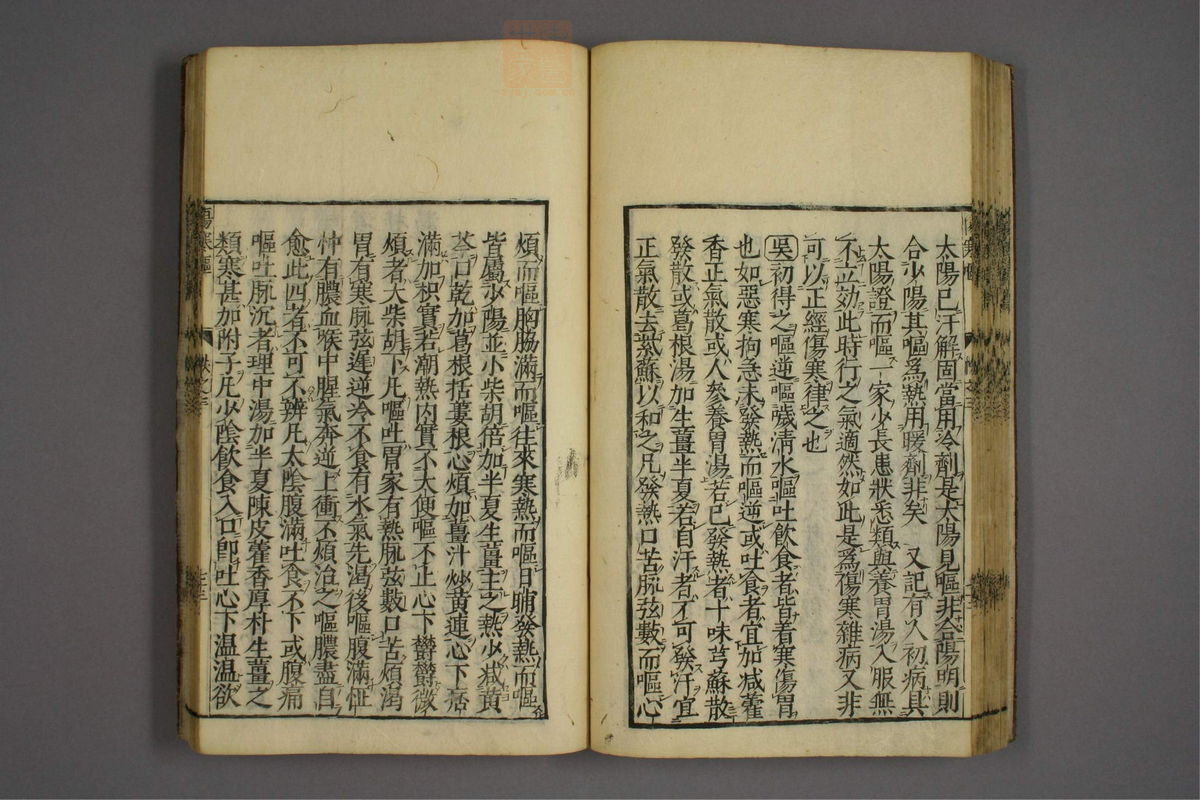 太陽已汗解固當用冷劑是太陽見嘔非合陽明則
合少陽其嘔爲熱用暖劑非矣　又記有人初病具
太陽證而嘔一家少長患狀悉類與養胃湯八服無
不立効此時行之氣適然如此是爲傷寒雜病又非
可以正經傷寒律之也
吳初得之嘔逆嘔穢清水嘔吐飲食者皆着寒傷胃
也如惡寒拘急未發熱而嘔逆或吐食者宜加減藿
香正氣散或人參養胃湯若已發熱者十味芎蘇散
發散或葛根湯加生薑半夏若自汗者不可發汗宜
正氣散去紫蘇以和之凡發熱口苦脉弦數而嘔心
煩而嘔胸脇滿而嘔往來寒熱而嘔日晡發熱而嘔
皆屬少陽並小柴胡倍加半夏生薑主之熱少減黃
芩口乾加葛根括蔞根心煩加薑汁炒黃連心下痞
滿加枳實若潮熱內實不大便嘔不止心下鬱鬱微
煩者大柴胡下凡嘔吐胃家有熱脉弦數口苦煩渴
胃有寒脉弦遲逆冷不食有水氣先渴後嘔腹滿怔
忡有膿血喉中腥氣奔逆上衝不煩治之嘔膿盡自
愈此四者不可不辨凡太陰腹滿吐食不下或腹痛
嘔吐脉沉者理中湯加半夏陳皮藿香厚朴生薑之
類寒甚加附子凡少陰飲食入口卽吐心下温温欲